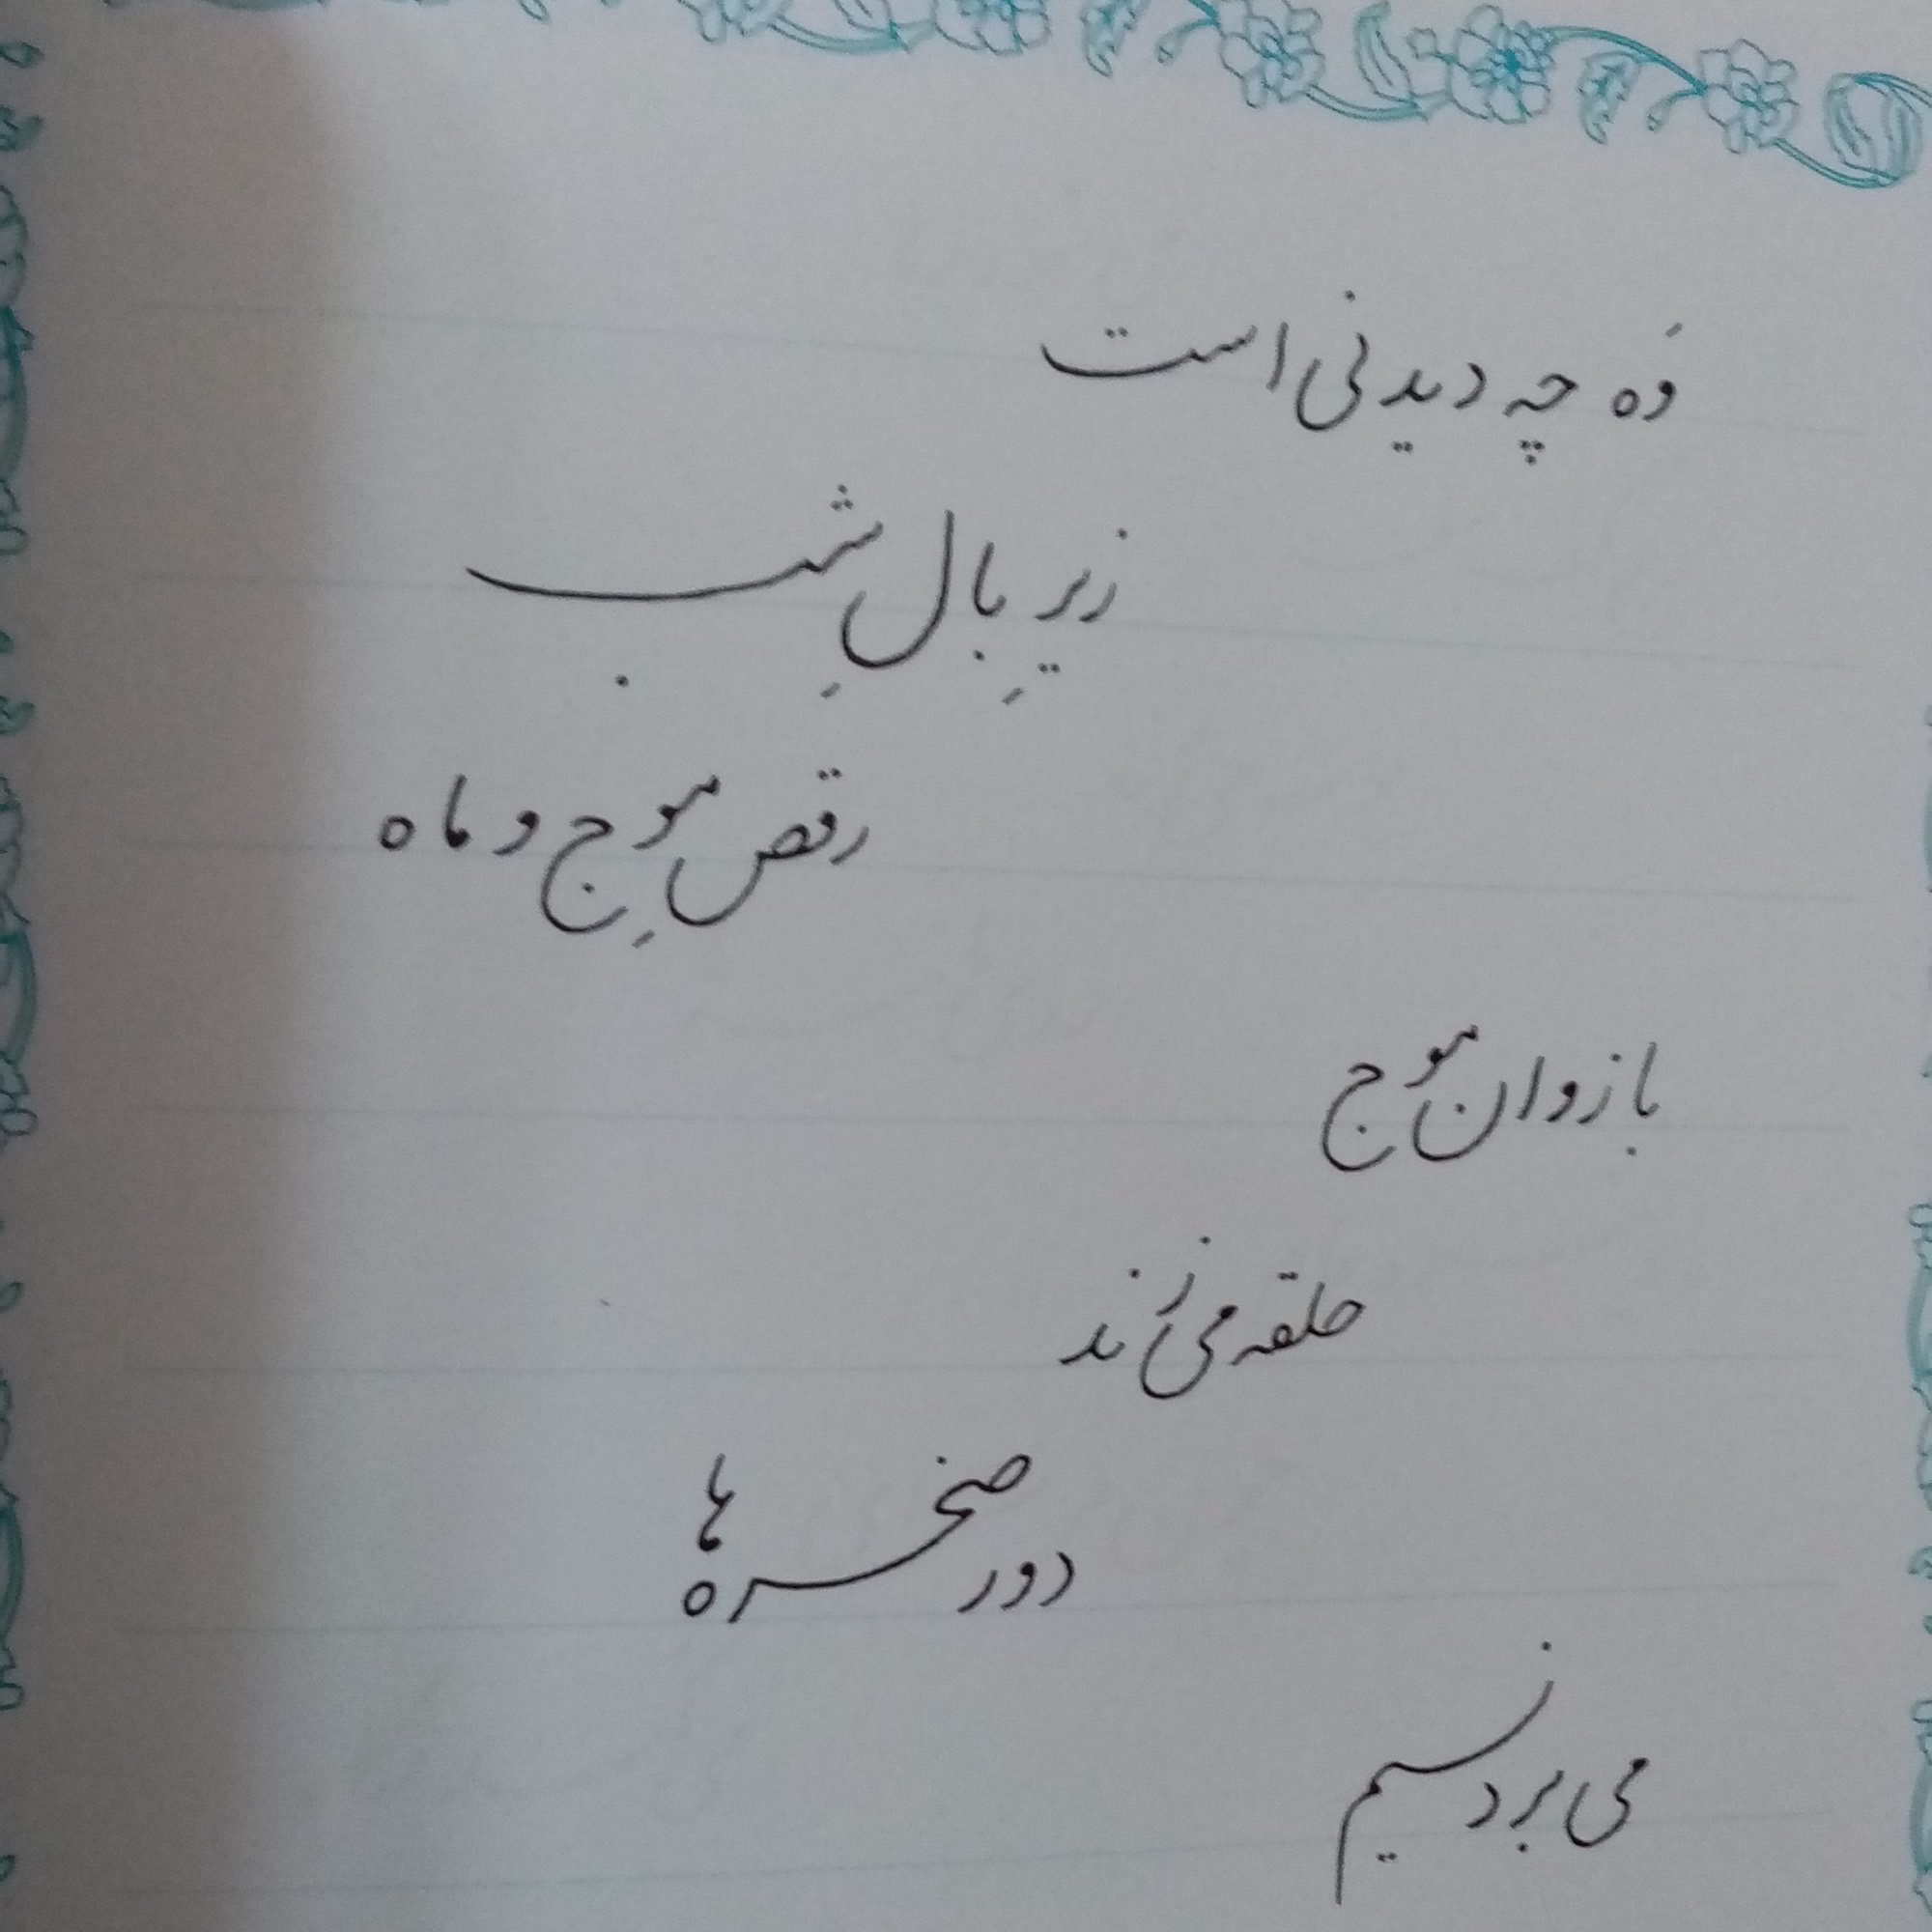 وَه چه دیدنی است
زیرِ بالِ شب
رقصِ موج و ماه
بازوان موج
حلقه می زند
دور صخره ها
می برد نسیم